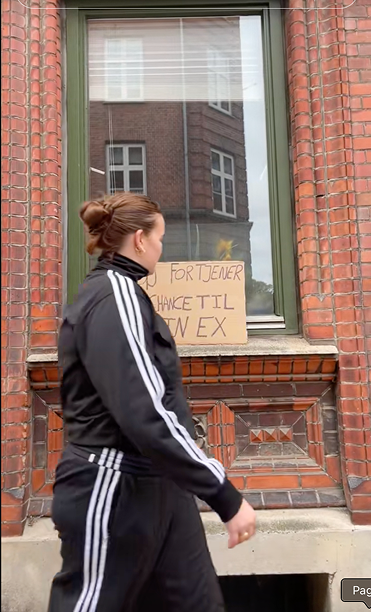 FORTJENER
CHANCE TIL
IN EX
Pag